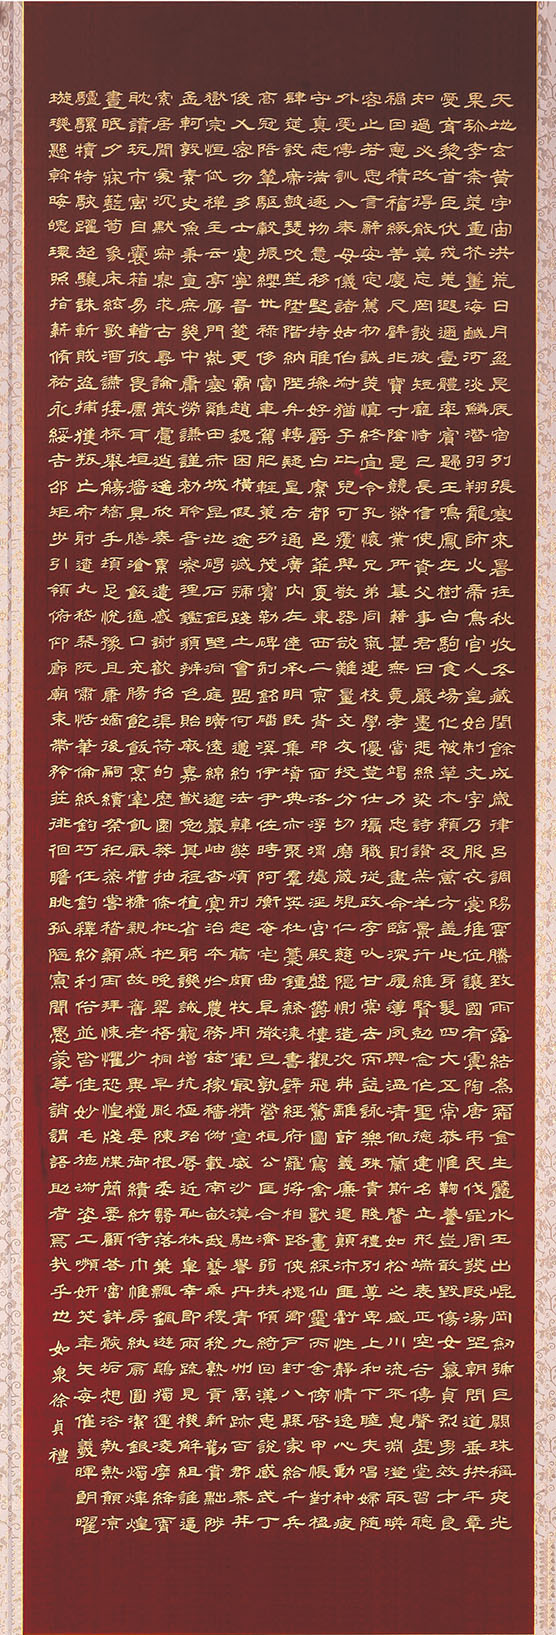 天地玄黃宇宙洪荒日月盈昃辰宿列張寒來暑往秋收冬藏閏餘成歲律呂調陽雲騰致雨露結為霜金生麗水玉出崐岡劍號巨闕珠稱夜光
果珍李柰菜重芥薑海鹹河淡鱗潛羽翔龍師火帝鳥官人皇始制文字乃服衣裳推位讓國有虞陶唐弔民伐罪周發殷湯坐朝問道垂拱平章
愛育黎首臣伏戎羌遐邇壹體率賓歸王鳴鳳在樹白駒食場化被草木賴及萬方蓋此身髮四大五常恭惟鞠養豈敢毀傷女慕貞烈男效才良
知過必改得能莫忘罔談彼短靡恃己長信使資父事君曰嚴墨悲絲染詩讚羔羊景行維賢剋念作聖德建名立形端表正空谷傳聲虛堂習聽
禍因惡積福緣善慶尺璧非寶寸陰是競榮業所基籍甚無竟孝當竭力忠則盡命臨深履薄夙興溫凊似蘭斯馨如松之盛川流不息淵澄取映
容止若思言辭安定篤初誠美慎終宜令孔懷兄弟同氣連枝學優登仕攝職從政存以甘棠去而益詠樂殊貴賤禮別尊卑上和下睦夫唱婦隨
外受傅訓入奉母儀諸姑伯叔猶子比兒可覆與敬器欲難量交友投分切磨箴規仁慈隱惻造次弗離節義廉退顛沛匪虧性靜情逸心動神疲
守真志滿逐物意移堅持雅操好爵自縻都邑華夏東西二京背邙面洛浮渭據涇宮殿盤鬱樓觀飛驚圖寫禽獸畫綵仙靈丙舍傍啓甲帳對楹
肆筵設席鼓瑟吹笙陞階納陛弁轉疑星右通廣內左達承明既集墳典亦聚羣英杜藁鍾隸漆書壁經府羅將相路俠槐卿戶封八縣家給千兵
高冠陪輦驅轂振纓世祿侈富車駕肥輕策功茂實勒碑刻銘磻溪伊尹佐時阿衡奄宅曲阜微旦孰營桓公匡合濟弱扶傾綺回漢惠說感武丁
俊乂密勿多士寔寧晉楚更霸趙魏困橫假途滅虢踐土會盟何遵約法韓弊煩刑起翦頗牧用軍最精宣威沙漠馳譽丹青九州禹跡百郡秦并
嶽宗恒岱禪主云亭雁門紫塞雞田赤城昆池碣石鉅野洞庭曠遠綿邈巖岫杳冥治本於農務茲稼穡俶載南畝我藝黍稷稅熟貢新勸賞黜陟
孟軻敦素史魚秉直庶幾中庸勞謙謹勅聆音察理鑑貌辨色貽厥嘉猷勉其祗植省躬譏誡寵增抗極殆辱近恥林皐幸即兩疏見機解組誰逼
索居閒處沉默寂寥求古尋論散慮逍遙欣奏累遣慼謝歡招渠荷的歷園莽抽條枇杷晚翠梧桐早彫陳根委翳落葉飄颻遊鵾獨運凌摩絳霄
耽讀玩市寓目囊箱易輶攸畏屬耳垣墻具膳飡飯適口充腸飽飫烹宰飢厭糟糠親戚故舊老少異糧妾御績紡侍巾帷房紈扇圓潔銀燭煒煌
晝眠夕寐藍筍象床絃歌酒讌接杯擧觴矯手頓足悅豫且康嫡後嗣續祭祀蒸嘗稽顙再拜悚懼恐惶牋牒簡要顧答審詳骸垢想浴執熱願涼
驢騾犢特駭躍超驤誅斬賊盜捕獲叛亡布射遼丸嵇琴阮嘯恬筆倫紙鈞巧任釣釋紛利俗並皆佳妙毛施淑姿工嚬姸笑年矢每催羲暉朗曜
璇璣懸斡晦魄環照指薪脩祐永綏吉邵矩步引領俯仰廊廟束帶矜莊徘徊瞻眺孤陋寡聞愚蒙等誚謂語助者焉哉乎也 如泉徐貞禮